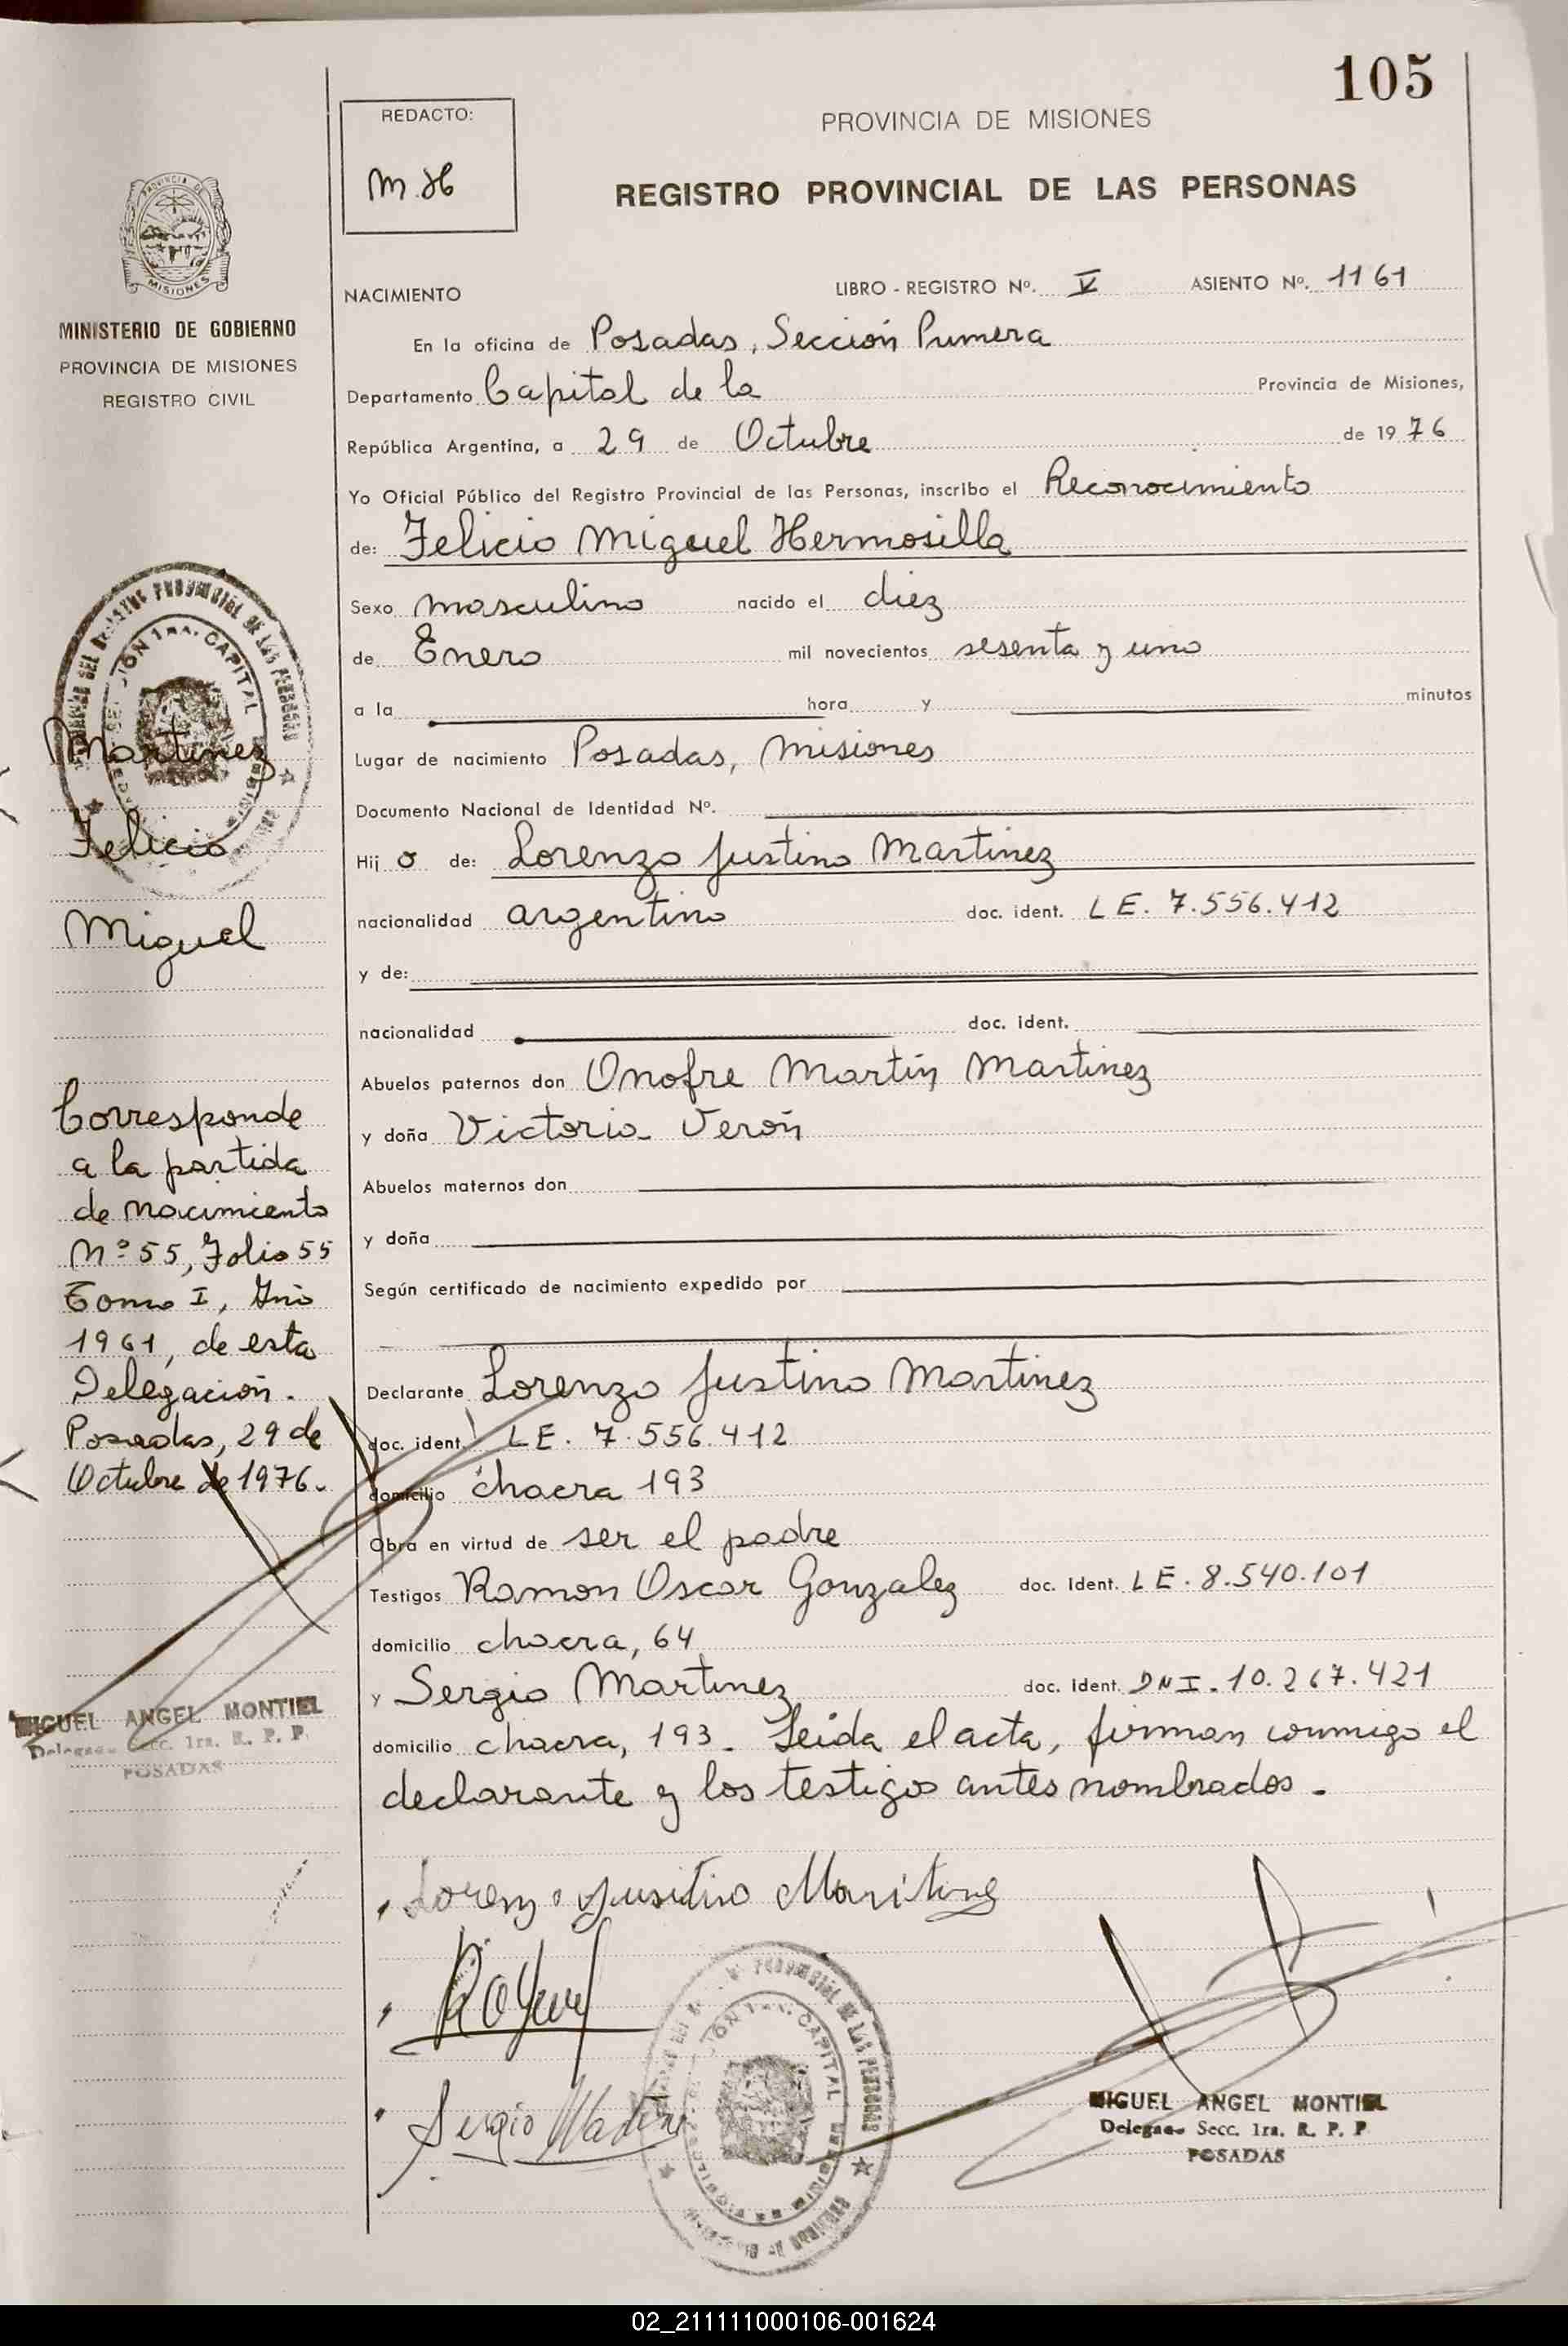 105
REDACTO:
M.H
PROVINCIA DE MISIONES
REGISTRO PROVINCIAL DE LAS PERSONAS
NACIMIENTO LIBRO - REGISTRO Nº. V ASIENTO Nº. 1161
En la oficina de Posadas, Sección Primera
Departamento Capital de la Provincia de Misiones,
República Argentina, a 29 de Octubre de 1976
Yo Oficial Público del Registro Provincial de las Personas, inscribo el Reconocimiento
de: Felicio Miguel Hermosilla
Sexo masculino nacido el diez
de Enero mil novecientos sesenta y uno
a la hora y minutos
Lugar de nacimiento Posadas, Misiones
Documento Nacional de Identidad Nº.
Hij o de: Lorenzo Justino Martinez
nacionalidad argentino doc. ident. LE. 7.556.412
y de:
nacionalidad doc. ident.
Abuelos paternos don Onofre Martín Martinez
y doña Victoria Verón
Abuelos maternos don
y doña
Según certificado de nacimiento expedido por
Declarante Lorenzo Justino Martinez
doc. ident. LE. 7.556.412
domicilio chacra 193
Obra en virtud de ser el padre
Testigos Ramon Oscar Gonzalez doc. Ident. LE. 8.540.101
domicilio chacra, 64
y Sergio Martinez doc. Ident. DNI. 10.267.421
domicilio chacra, 193. Leida el acta, firman conmigo el
declarante y los testigo antes nombrados.
Lorenzo Jusitino Maritinez
Sergio Martinez
MIGUEL ANGEL MONTIEL
Delegado Secc. 1ra. R. P. P
POSADAS
PROVINCIA DE
MISIONES
MINISTERIO DE GOBIERNO
PROVINCIA DE MISIONES
REGISTRO CIVIL
Martinez
Felicio
Miguel
Corresponde
a la partida
de nacimiento
Nº 55, Folio 55
Tomo I, Año
1961, de esta
Delegación.
Posadas, 29 de
Octubre de 1976.
MIGUEL ANGEL MONTIEL
Delegado Secc. 1ra. R. P. P.
POSADAS
02_211111000106-001624